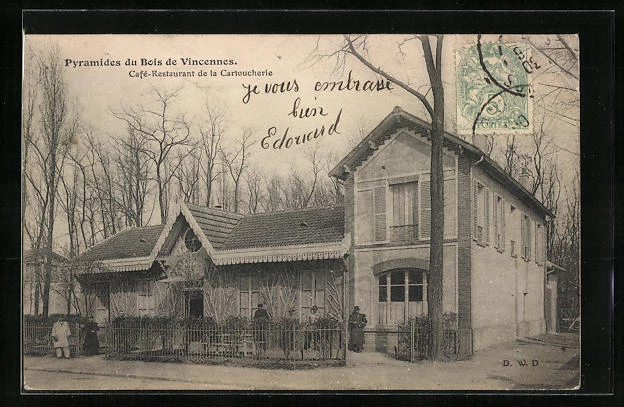 Pyramides du Bois de Vincennes.
Café-Restaurant de la Cartoucherie
je vous embrasse
bien
Edouard
POSTES
D. W. D